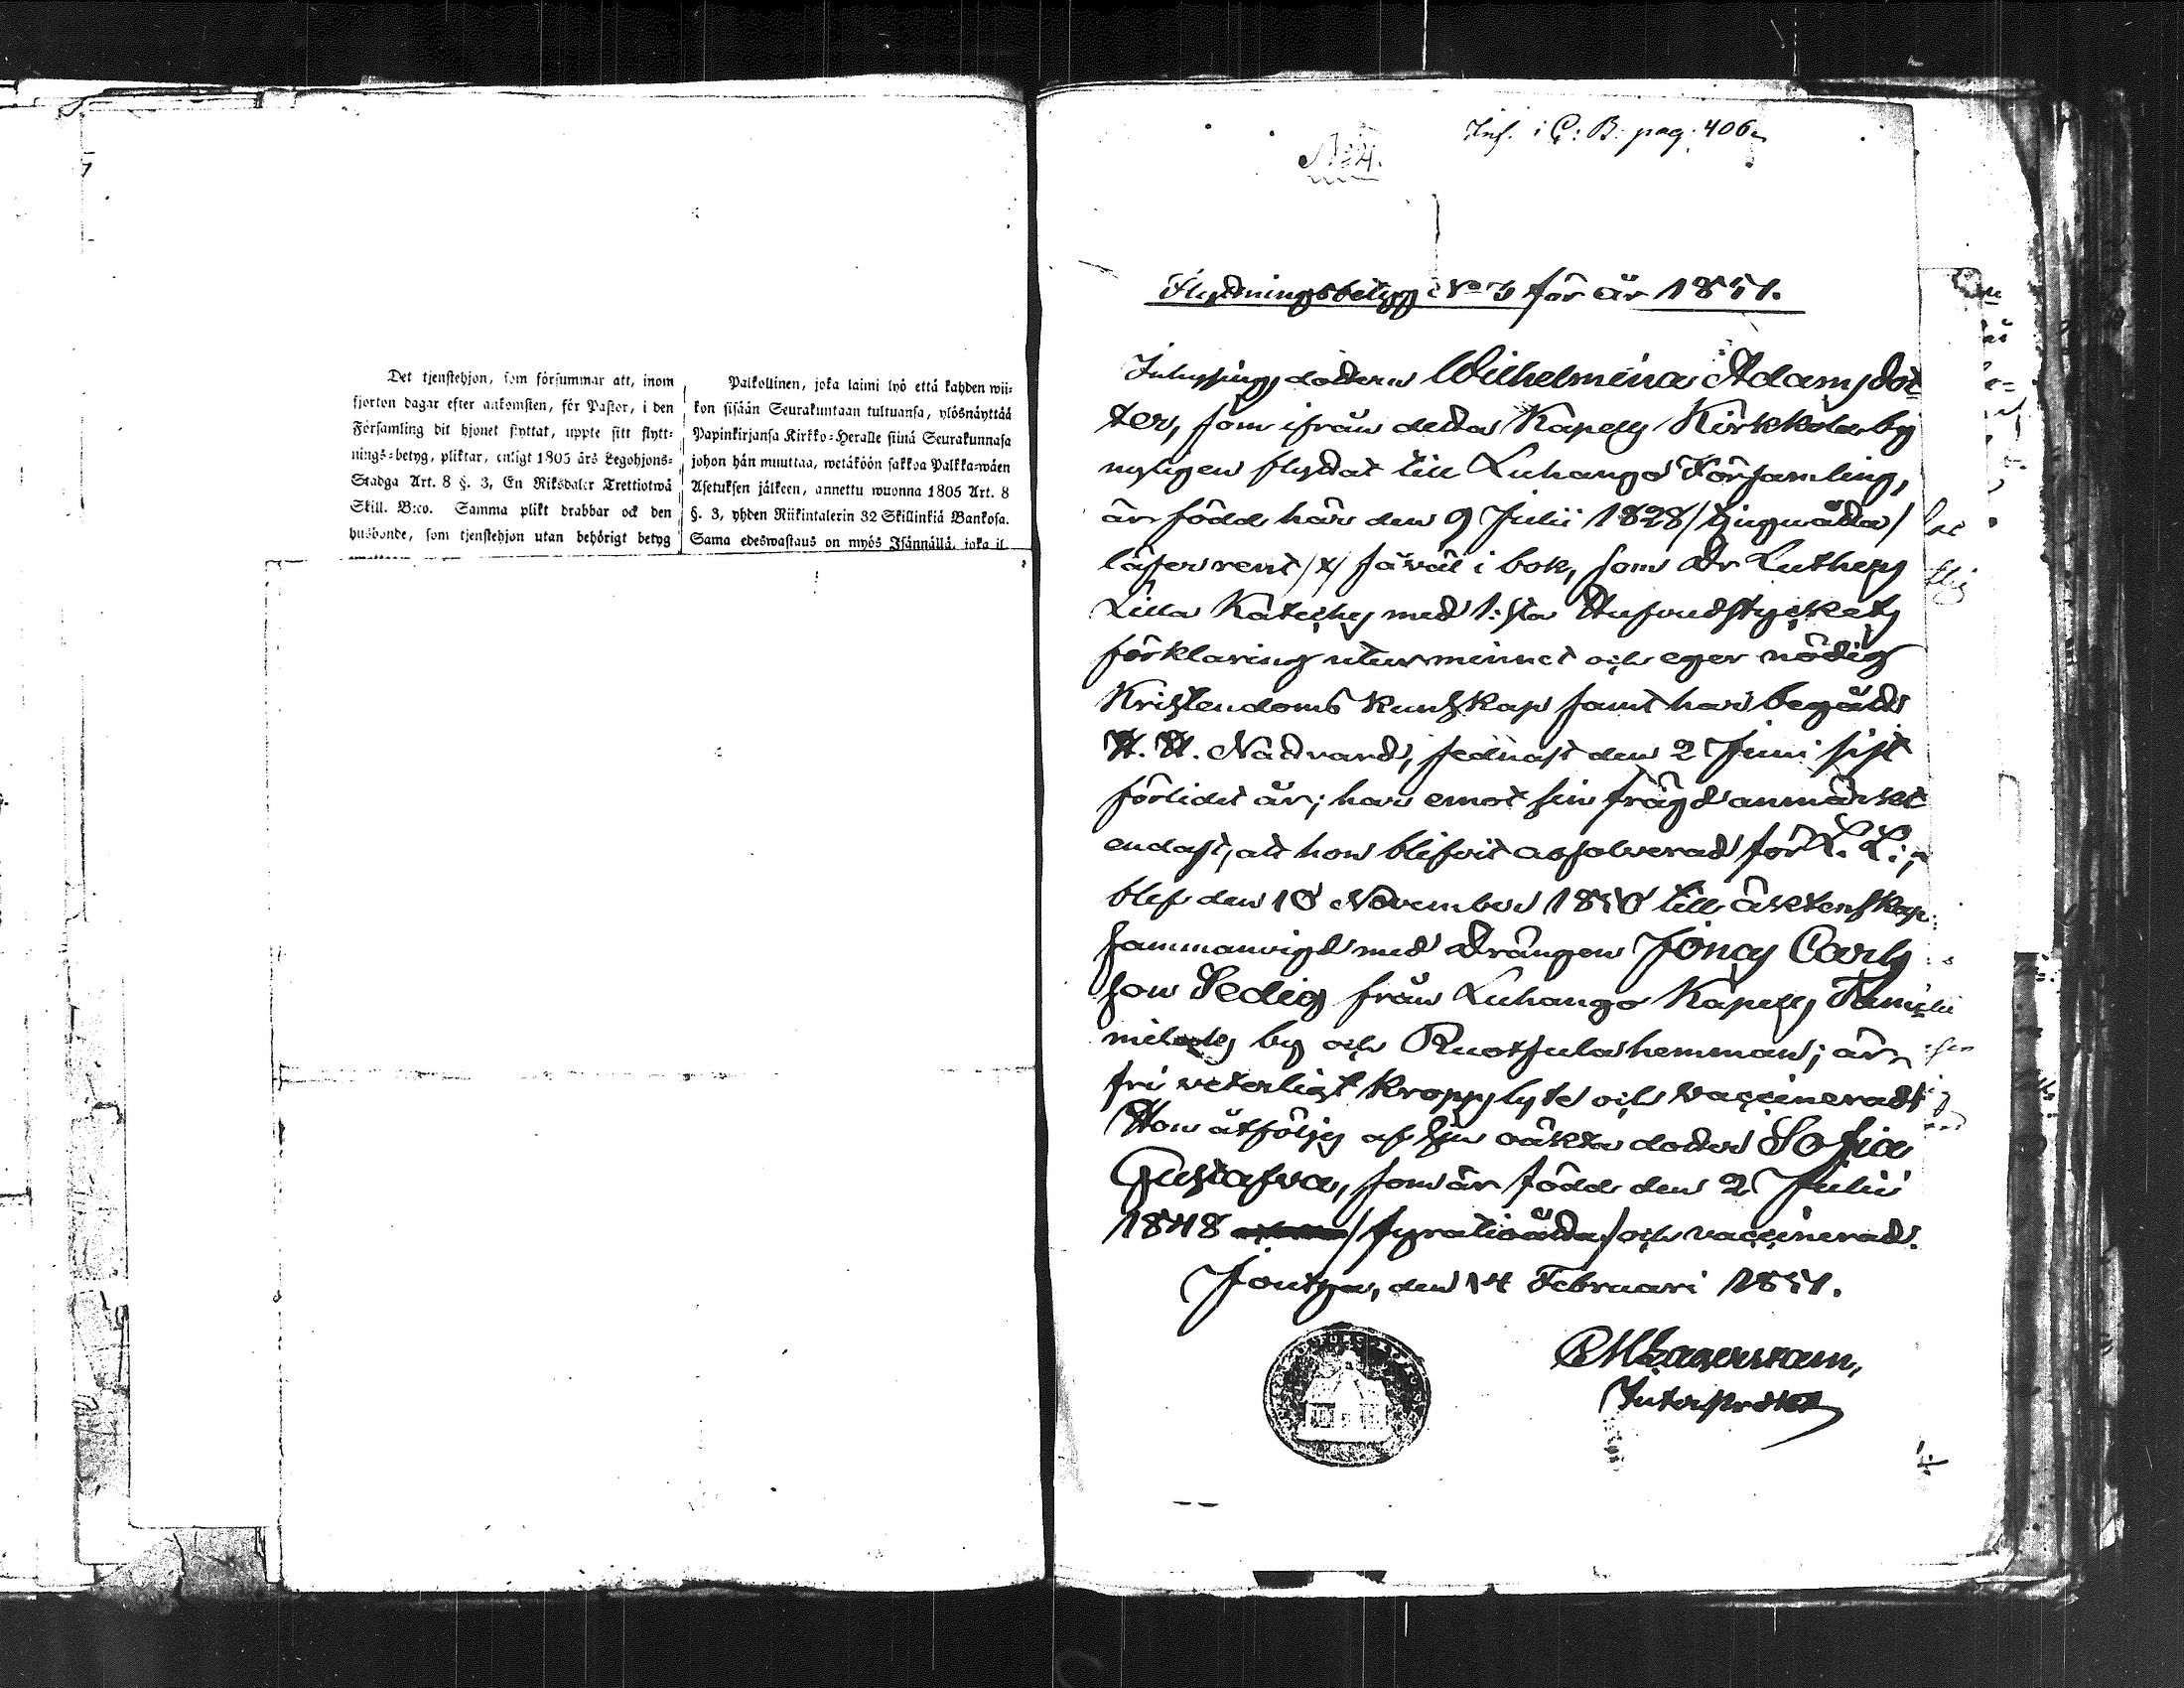 Det tjenstehjon, som försummar att, inom
fjorton dagar efter ankomsten, för Pastor, i den
Församling dit hjonet flyttat, uppte sitt flytt-
nings-betyg, pliktar, enligt 1805 års Legohjons-
Stadga Art. 8 §. 3, En Riksdaler Trettiotwå
Skill. B:co. Samma plikt drabbar ock den
husbonde, som tjenstehjon utan behörigt betyg
Palkollinen, joka laimi lyö että kahden wii-
kon sisään Seurakuntaan tultuansa, ylösnäyttää
Papinkirjansa Kirkko-Heralle siinä Seurakunnasa
johon hän muuttaa, wetäköön sakkoa Palkka-wäen
Asetuksen jälkeen, annettu wuonna 1805 Art. 8
§. 3, yhden Riikintalerin 32 Skillinkiä Bankosa.
Sama edeswastaus on myös Isännällä, joka il
Inf. i C: B: pag. 406
No 4.
Flyttningsbetyg No 3 för år 1851.
Inhysings dottern Wilhelmina Adamsdot
ter, som ifrån detta Kapells Kirkkola by
nyligen flyttat till Luhango Församling,
är född här den 9 Julii 1828 /tjuguåtta/
läser rent /x/ såväl i bok, som Dr Luthers
Lilla Kateches med 1:sta Hufvudstyckets
förklaring utur minnet och eger nödig
Kristendoms kunskap samt har begått
H. H. Nattvard, sednast den 2 Juni sist
förlidet år; har emot sin frägd anmärkt
endast, att hon blifvit absolverad för L. L.;
blef den 10 November 1850 till äktenskap
sammanvigd med Drängen Jonas Carls
son Sedig från Luhango Kapells Tami
by och Ruotsula hemman; är
fri veterligt kroppslyte och vaccinerad
Hon åtföljes af sin oäkta dotter Sofia
Gustafva, som är född den 2 Julii
1848 /fyratioåtta/ och vaccinerad.
Joutsa, den 14 Februari 1851.
Lagervam,